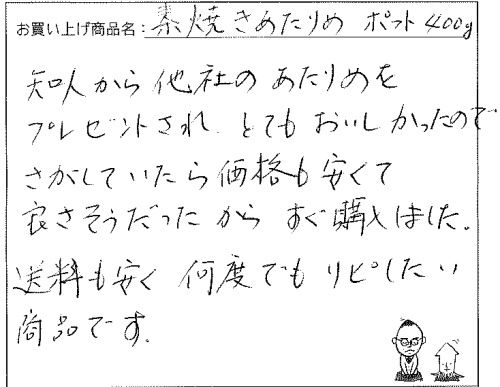 お買い上げ商品名：素焼きあたりめ ポット400g
知人から他社のあたりめを
プレゼントされ、とてもおいしかったので
さがしていたら価格も安くて
良さそうだったからすぐ購入しました。
送料も安く何度でもリピしたい
商品です。